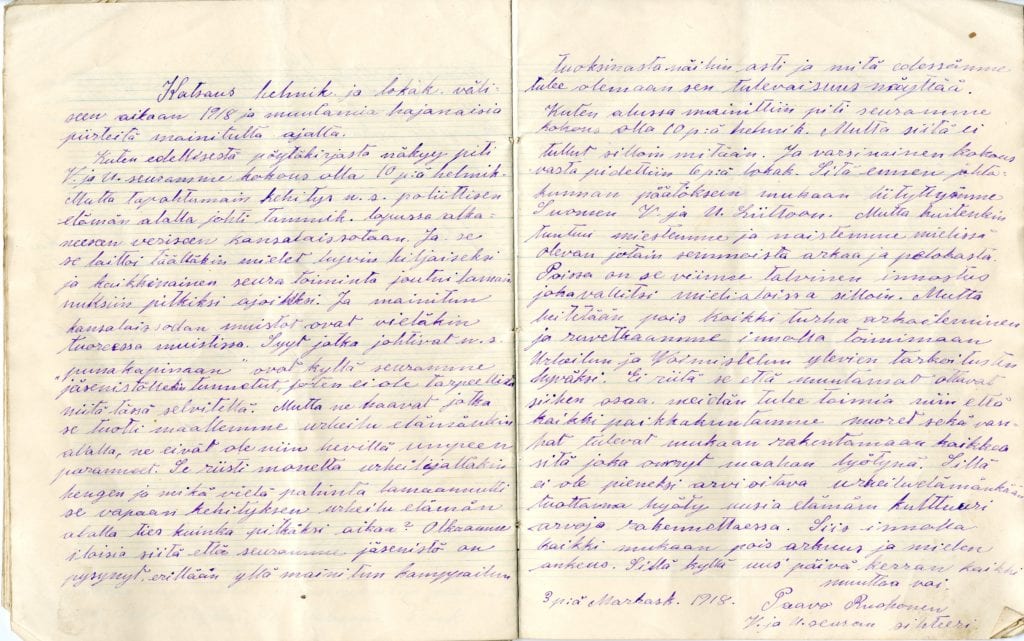 Katsaus helmik. ja lokak. väli-
seen aikaan 1918 ja muutamia hajanaisia
piirteitä mainitulta ajalta.
Kuten edellisestä pöytäkirjasta näkyy piti
V. ja U. seuramme kokous olla 10 p:ä helmik.
Mutta tapahtumain kehitys n. s. poliittisen
elämän alalla johti tammik. lopussa alka-
neeseen veriseen kansalaissotaan. Ja se
se laittoi täälläkin mielet hyvin hiljaiseksi
ja kaikkinainen seura toiminta joutui
pitkiksi ajoiksi. Ja mainitun
kansalaissodan muistot ovat vieläkin
tuoreessa muistissa. Syyt jotka johtivat n. s.
"punakapinaan" ovat kyllä seuramme
jäsenistöllekin tunnetut joten ei ole tarpeellista
niitä tässä selvitellä. Mutta ne haavat jotka
se tuotti maallemme urheilu elämänkin
alalla, ne eivät ole niin hevillä umpeen
paranneet. Se riisti monelta urheilijaltakin
hengen ja mikä vielä pahinta lamaannutti
se vapaan kehityksen urheilu elämän
alalla ties kuinka pitkäksi aikaa? Olkaamme
iloisia siitä että seuramme jäsenistö on
pysynyt erillään yllä mainitun kamppailun
tuoksinasta näihin asti ja mitä edessämme
tulee olemaan sen tulevaisuus näyttää.
Kuten alussa mainittiin piti seuramme
kokous olla 10 p:ä helmik. Mutta siitä ei
tullut silloin mitään. Ja varsinainen kokous
vasta pidettiin 6 p:ä lokak. Sitä ennen johto-
kunnan päätöksen mukaan liityttyämme
Suomen V. ja U. Liittoon. Mutta kuitenkin
tuntuu miestemme ja naistemme mielissä
olevan jotain semmoista arkaa ja pelokasta.
Poissa on se viime talvinen innostus
joka vallitsi mielialoissa silloin. Mutta
heitetään pois kaikki turha arkaileminen
ja ruvetkaamme innolla toimimaan
Urheilun ja Voimistelun ylevien tarkoitusten
hyväksi. Ei riitä se että muutamat ottavat
siihen osaa. meidän tulee toimia niin että
kaikki paikkakuntamme nuoret sekä van-
hat tulevat mukaan rakentamaan kaikkea
sitä joka maahan lyötynä. Sillä
ei ole pieneksi arvioitava urheiluelämänkään
tuottama hyöty uusia elämän kulttuuri
arvoja rakennettaessa. Siis innolla
kaikki mukaan pois arkuus ja mielen
ankeus. Sillä kyllä uus' päivä kerran kaikki
muuttaa voi.
3 p:ä Marrask. 1918.
Paavo Ruohonen
V. ja U. seuran sihteeri.